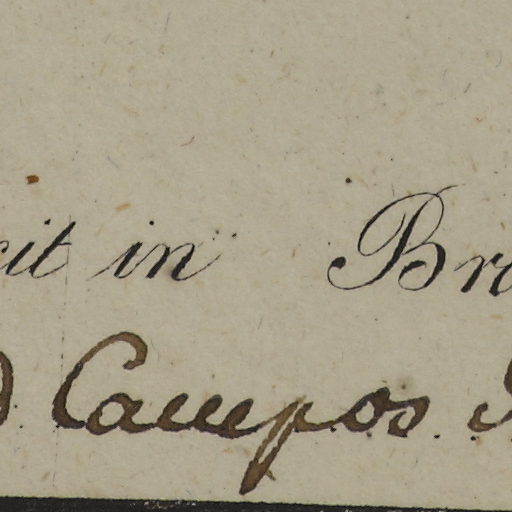 cit in Bra
d Campos